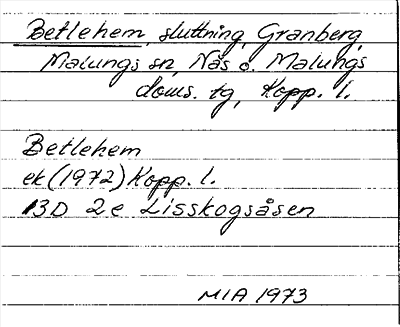 Betlehem, sluttning, Granberg,
Malungs sn, Nås o. Malungs
doms. tg, Kopp. l.
Betlehem
ek (1972) Kopp. l.
13D 2e Lisskogsåsen
MIA 1973